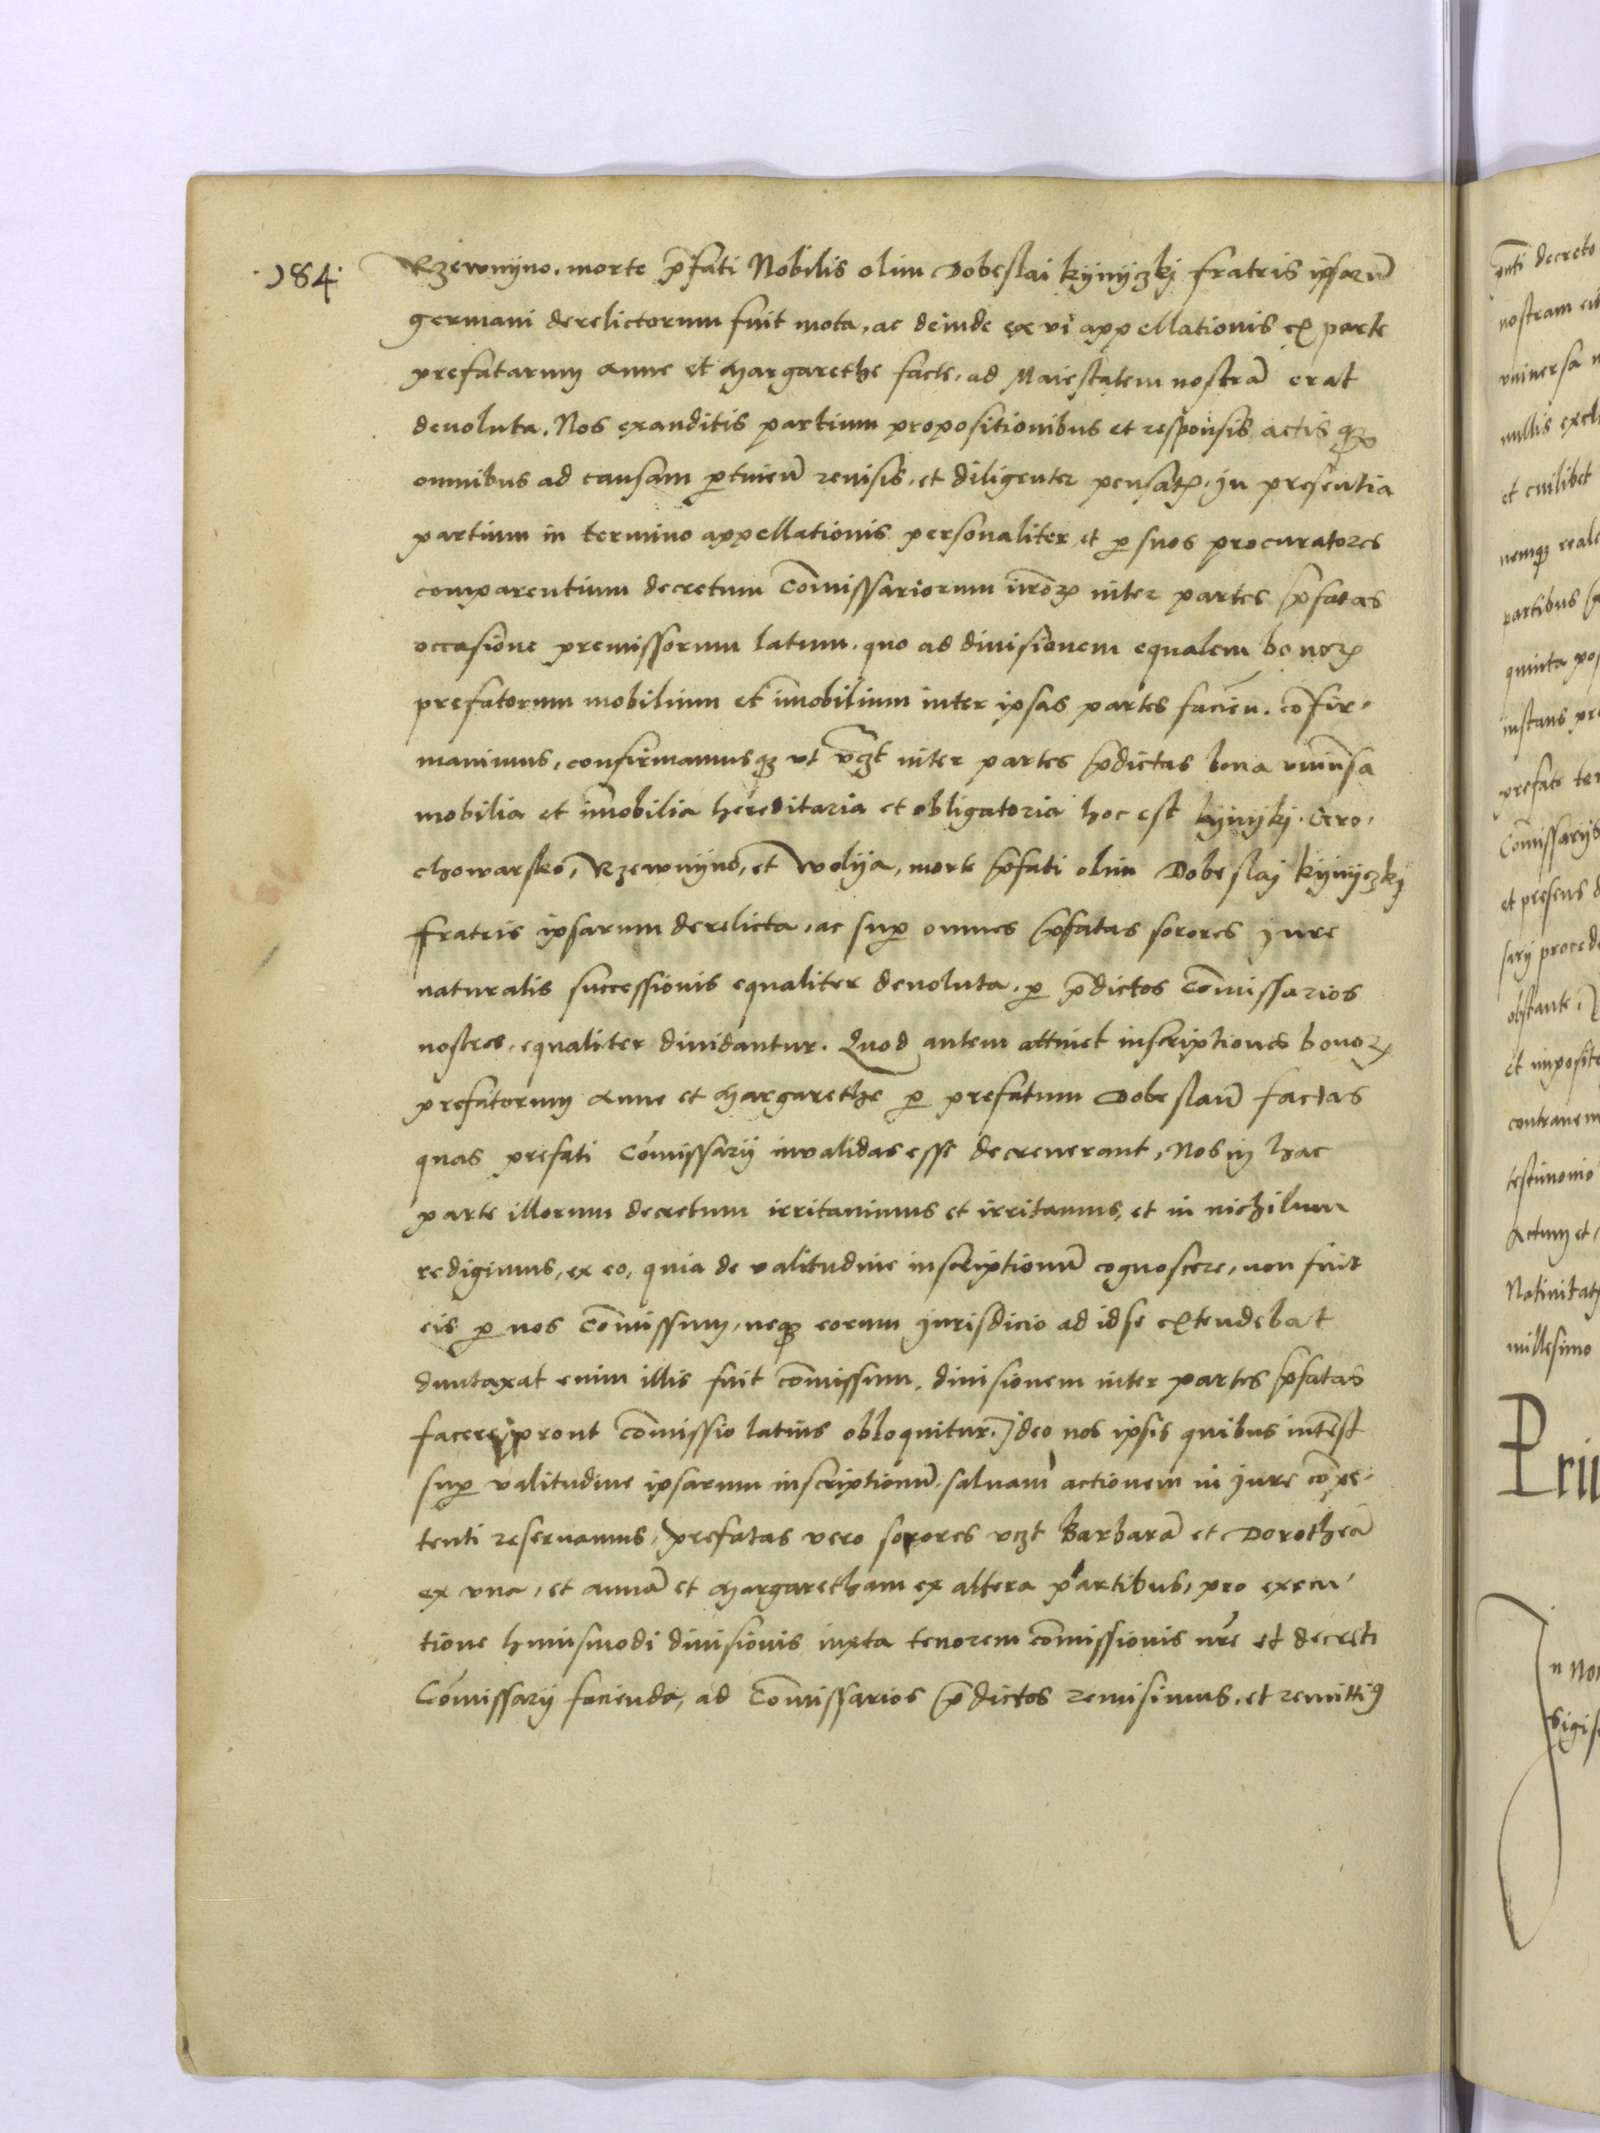 ·184·
Rzewnÿno. morte p̄fati Nobilis olim Dobeslai kÿnÿczkj fratris ipsarū
germani derelictorum fuit mota, ac deinde ex vi appellationis ex parte
prefatarum Anne et Margarethe facte, ad Maiestatem nostrā erat
deuoluta. Nos exauditis partium propositionibus et responsis actisqꝫ
omnibus ad causam ꝑtineñ reuisis, et diligenter pensatꝭ, in presentia
partium in termino appellationis personaliter et ꝑ suos procuratores
comparentium decretum Cōmissariorum nr̄oꝝ inter partes p̄fatas
occasione premissorum latum. quo ad diuisionem equalem bonoꝝ
prefatorum mobilium et īmobilium inter ipsas partes facień. cōfir-
mauimus, confirmamusqꝫ vt vꝫt inter partes p̄dictas bona vniūsa
mobilia et īmobilia hereditaria et obligatoria hoc est kÿnÿkj. Cero-
chowarsko, Rzewnÿno, et Wolÿa, morte p̄fati olim Dobeslaj kÿnÿczkÿ
fratris ipsarum derelicta, ac suꝑ omnes p̄fatas sorores jure
naturalis successionis equaliter deuoluta, ꝑ p̄dictos Cōmissarios
nostros, equaliter diuidantur. Quod autem attinet inscriptiones bonoꝝ
prefatorum Anne et Margarethe ꝑ prefatum Dobeslaū factas
quas prefati Cōmissarij inualidas esse decreuerant, Nos in hac
parte illorum decretum irritauimus et irritamus, et in nichilum
redigimus, ex eo, quia de valitudine inscriptionū cognoscere, non fuit
eis ꝑ nos Cōmissum, neqꝫ eorum jurisdicio ad id se extendebat
duntaxat enim illis fuit cōmissum, diuisionem inter partes p̄fatas
facere, prout cōmissio latius obloquitur. Ideo nos ipsis quibus intēst
suꝑ valitudine ipsarum inscriptionū, saluam actionem in jure cōpe-
tenti reseruamus, prefatas vero sorores vꝫt Barbarā et Dorotheā
ex vna, et annā et Margaretham ex altera partibus, pro execu-
tione huiusmodi diuisionis iuxta tenorem cōmissionis nr̄e et decreti
Cōmissarij facienda, ad Cōmissarios p̄dictos remisimus, et remittiꝰ
p̄nti decreto
nostram
vniuersa
nullis
et cuilibet
nemqꝫ
partibus
quinta
instans
prefate
Cōmissarijs
et presens
sarij
obstante
et imposit
testimonio
Actum et
Natiuitatꝭ
millesimo